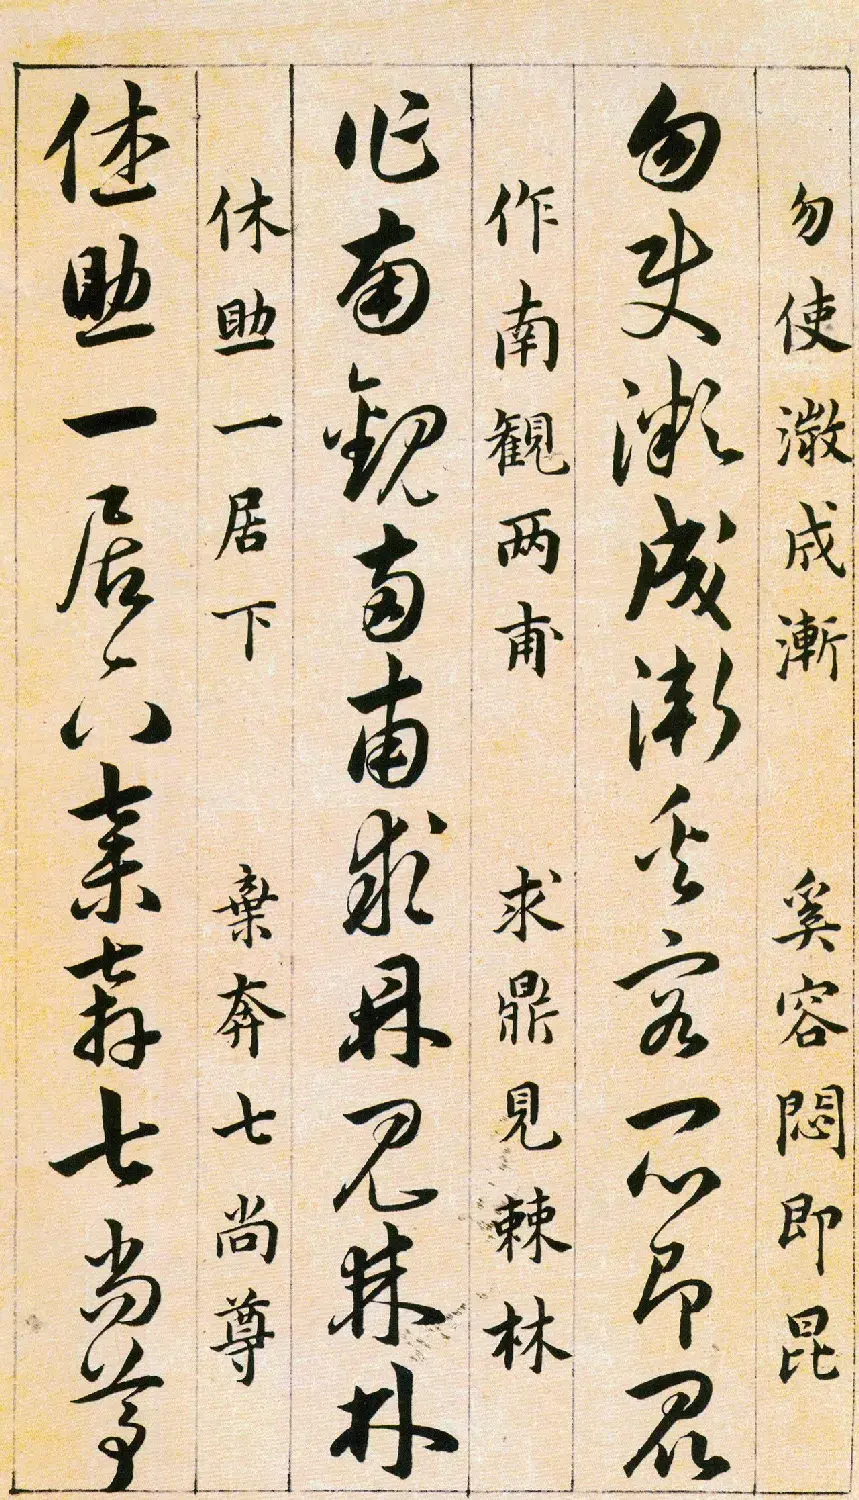 勿使溦成漸　奚容悶即昆
勿使溦成漸奚容悶即昆
作南観两甫　求鼎見棘林
作南観两甫求鼎見棘林
休助一居下　棄奔七尚尊
休助一居下棄奔七尚尊